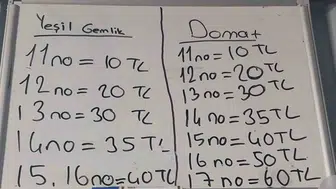 Yeşil Gemlik
11no = 10 TL
12no = 20 TL
13no = 30 TL
14no = 35 TL
15.16no = 40TL
Domat
11no = 10 TL
12no = 20 TL
13no = 30 TL
14no = 35 TL
15no = 40 TL
16no = 50 TL
17no = 60 TL